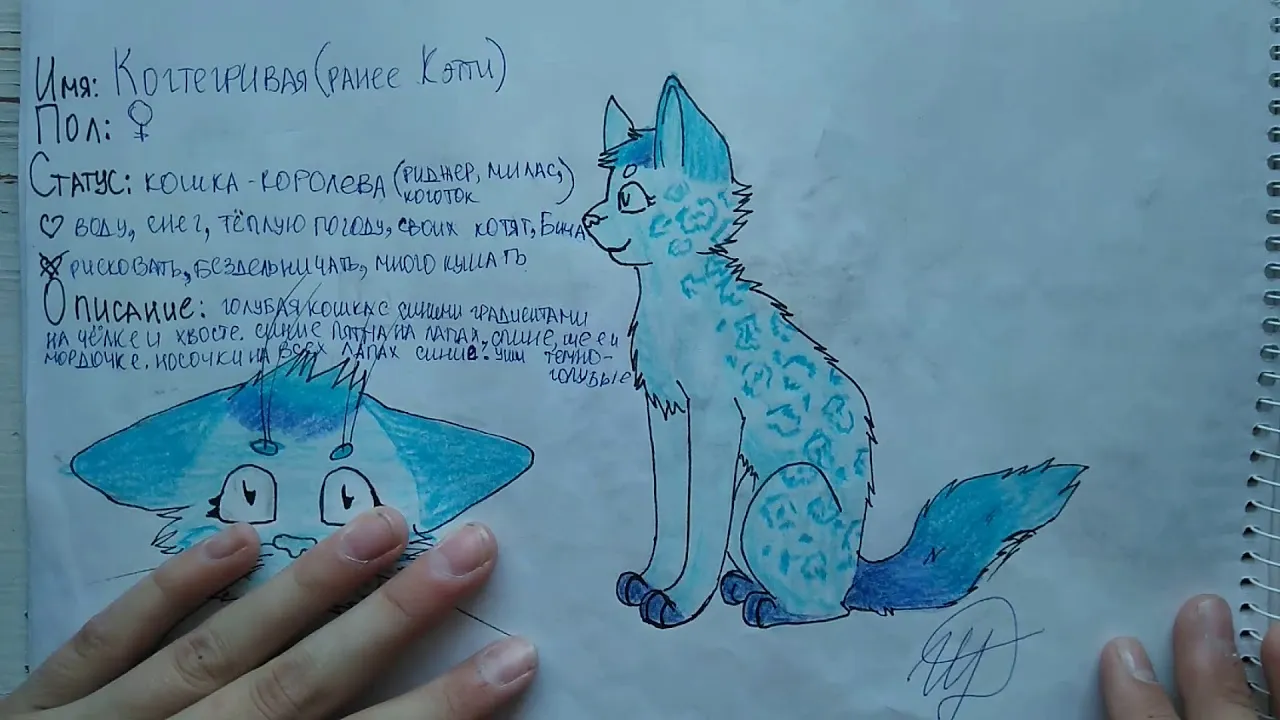 Имя: Когтегривая (ранее Кэти)
Пол: ♀
Статус: кошка-королева (Риджер, Милас,
Коготок)
♡ воду, снег, тёплую погоду, своих котят, Бича
рисковать, бездельничать, много кушать
Описание: голубая кошка с синими градиентами
на чёлке и хвосте. синие пятна на лапах, спине, шее и
мордочке. носочки на всех лапах синие. уши темно-
голубые